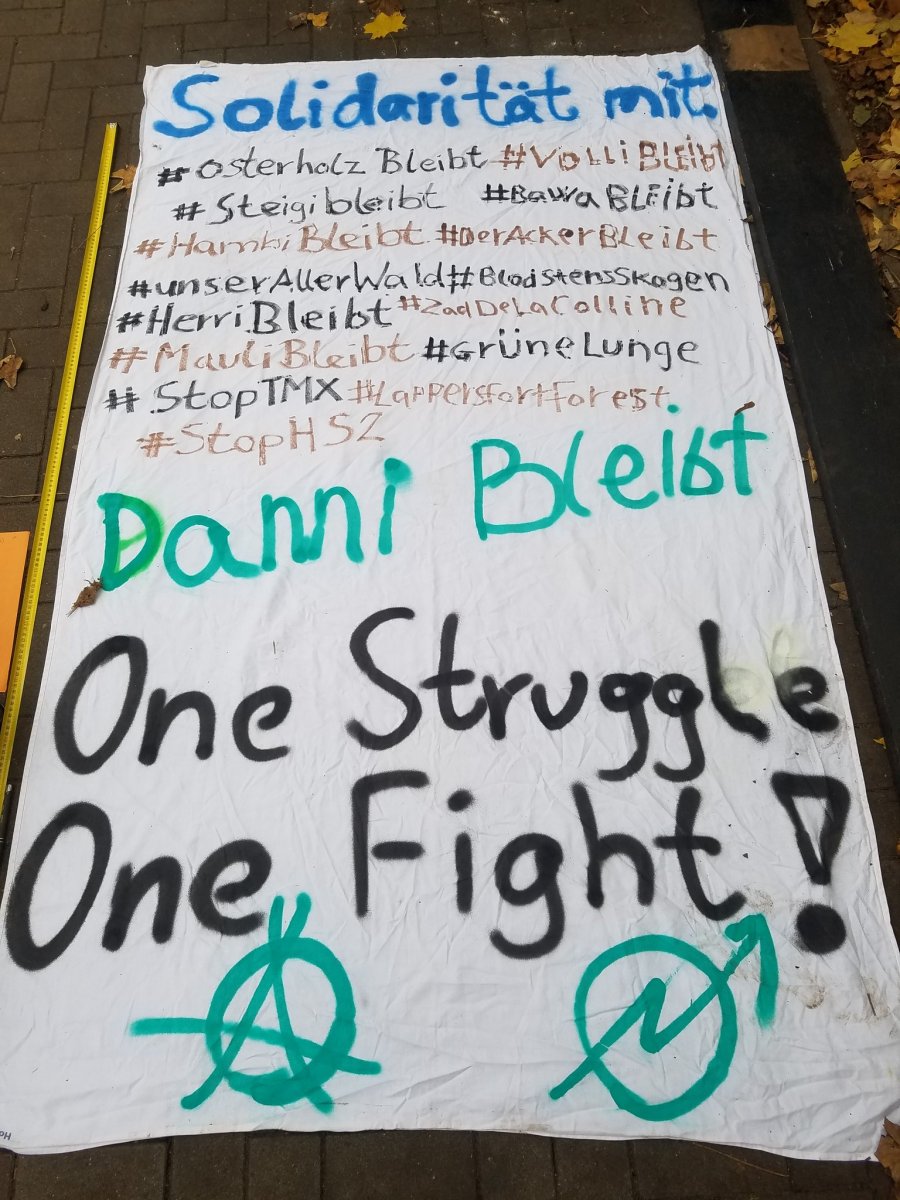 Solidarität mit:
#OsterholzBleibt #VolliBleibt
#Steigibleibt #BawaBLEibt
#HambiBleibt #DerAckerBleibt
#unserAllerWald #BlodstensSkogen
#HerriBleibt #ZadDeLaColline
#MauliBleibt #GrüneLunge
#StopTMX #Lappersfortforest
#StopHS2
Danni Bleibt
One Struggle
One Fight!